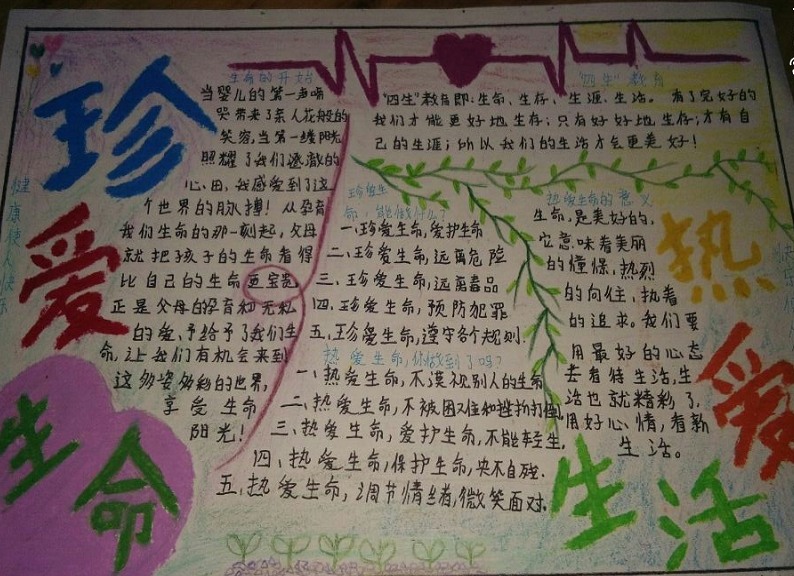 珍
爱
生
命
热
爱
生
活
健康使人快乐
生命的开始
当婴儿的第一声啼
哭带来了亲人花般的
笑容,当第一缕阳光
照耀了我们
心田,我感受到了这
个世界的脉搏!从孕育
我们生命的那一刻起,父母
就把孩子的生命看得
比自己的生命更宝贵
正是父母的孕育和无私
的爱,予给予了我们生
命,让我们有机会来到
这多姿多彩的世界,
享受生命
阳光!
"四生"教育
"四生"教育即:生命、生存、生涯、生活。有了完好的
我们才能更好地生存;只有好好地生存;才有自
己的生涯;所以我们的生活才会更美好!
珍爱生
命,能做什么?
一、珍爱生命,爱护生命
二、珍爱生命,远离危险
三、珍爱生命,远离毒品
四、珍爱生命,预防犯罪
五、珍爱生命,遵守各个规则.
热爱生命,你做到了吗?
一、热爱生命,不漠视别人的生命
二、热爱生命,不被困难和挫折打倒
三、热爱生命,爱护生命,不能轻生.
四、热爱生命,保护生命,决不自残.
五、热爱生命,调节情绪,微笑面对.
热爱生命的意义
生命,是美好的,
它意味着美丽
的憧憬,热烈
的向往,执着
的追求。我们要
用最好的心态
去看待生活,生
活也就精彩了.
用好心情,看新
生活。